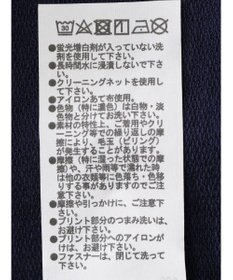 ●蛍光増白剤が入っていない洗
剤を使用して下さい。
●長時間水に浸漬しないで下さ
い。
●クリーニングネットを使用して下
さい。
●アイロンあて布使用。
●色物（特に濃色）は白物・淡
色物と分けてお洗い下さい。
●素材の特性上、ご着用やクリ
ーニング等での繰り返しの摩
擦により、毛玉（ピリング）
が発生することがあります。
●摩擦（特に湿った状態での摩
擦）や、汗や雨等で濡れた時
は他の衣類等に色落ち・色移り
する事がありますのでご注意
下さい。
●摩擦や引っかけに、ご注意下
さい。
●プリント部分のつまみ洗いは、
お避け下さい。
●プリント部分へのアイロンが
けは、お避け下さい。
●ファスナーは、閉じて洗って
下さい。